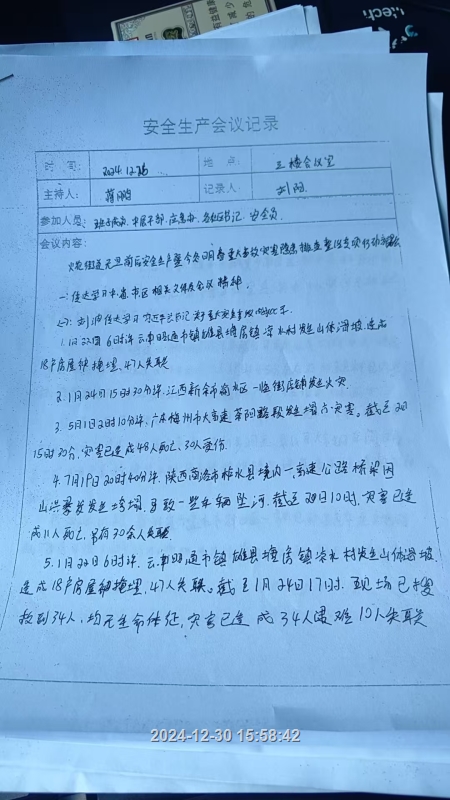 安全生产会议记录
时 间: 2024.12.26 地 点: 三楼会议室
主持人: 蒋鹏 记录人:
参加人员: 班子成员、中层干部、应急办、各社区书记、安全员.
会议内容:
街道元旦前后安全生产暨今冬明春重大事故灾害隐患排查整治专项行动
一: 传达学习中省市区相关文件及会议精神.
传达学习
1月22日6时许云南昭通市镇雄县塘房镇凉水村发生山体滑坡造成
18户房屋被掩埋,47人失联
2. 1月24日15时30分许,江西新余市渝水区一临街店铺发生火灾.
3. 5月1日2时10分许,广东梅州市大高速茶阳路段发生塌方灾害。截至2日
15时30分,灾害已造成48人死亡、30人受伤.
4. 7月19日20时40分许,陕西商洛市柞水县境内一高速公路桥梁因
山洪暴发发生垮塌,导致一些车辆坠河.截至20日10时,灾害已造
成11人死亡,另有30余人失联
5. 1月22日6时许,云南昭通市镇雄县塘房镇凉水村发生山体滑坡.
造成18户房屋被掩埋,47人失联.截至1月24日17时,现场已搜
救到34人,均无生命体征,灾害已造成34人遇难10人失联
2024-12-30 15:58:42